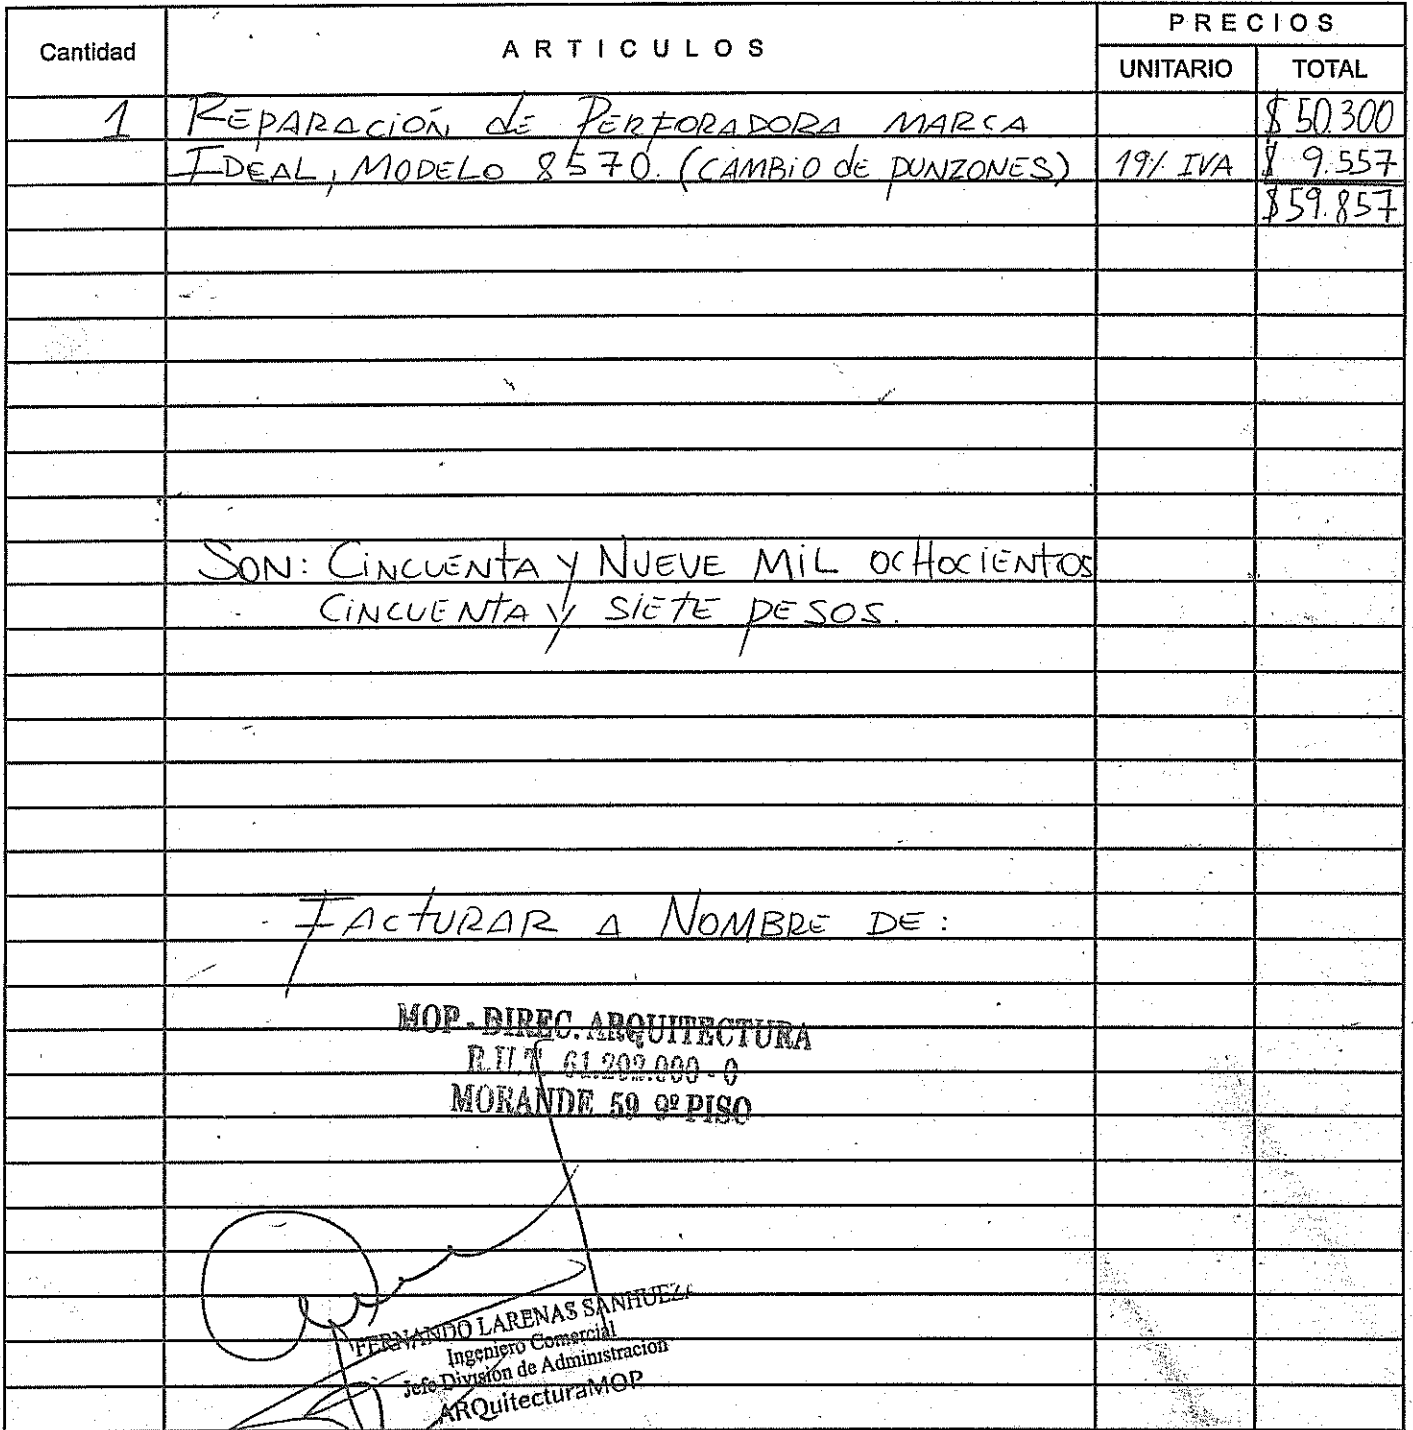 Cantidad ARTICULOS PRECIOS
UNITARIO TOTAL
1 REPARACIÓN de PERFORADORA MARCA $50.300
IDEAL, MODELO 8570. (CAMBIO de PUNZONES) 19% IVA $ 9.557
$59.857
SON: CINCUENTA Y NUEVE MIL OCHOCIENTOS
CINCUENTA Y SIETE PESOS.
FACTURAR A NOMBRE DE:
MOP - DIREC. ARQUITECTURA
R.U.T. 61.202.000 - 0
MORANDE 59 9º PISO
FERNANDO LARENAS SANHUEZA
Ingeniero Comercial
Jefe División de Administracion
ARQuitecturaMOP